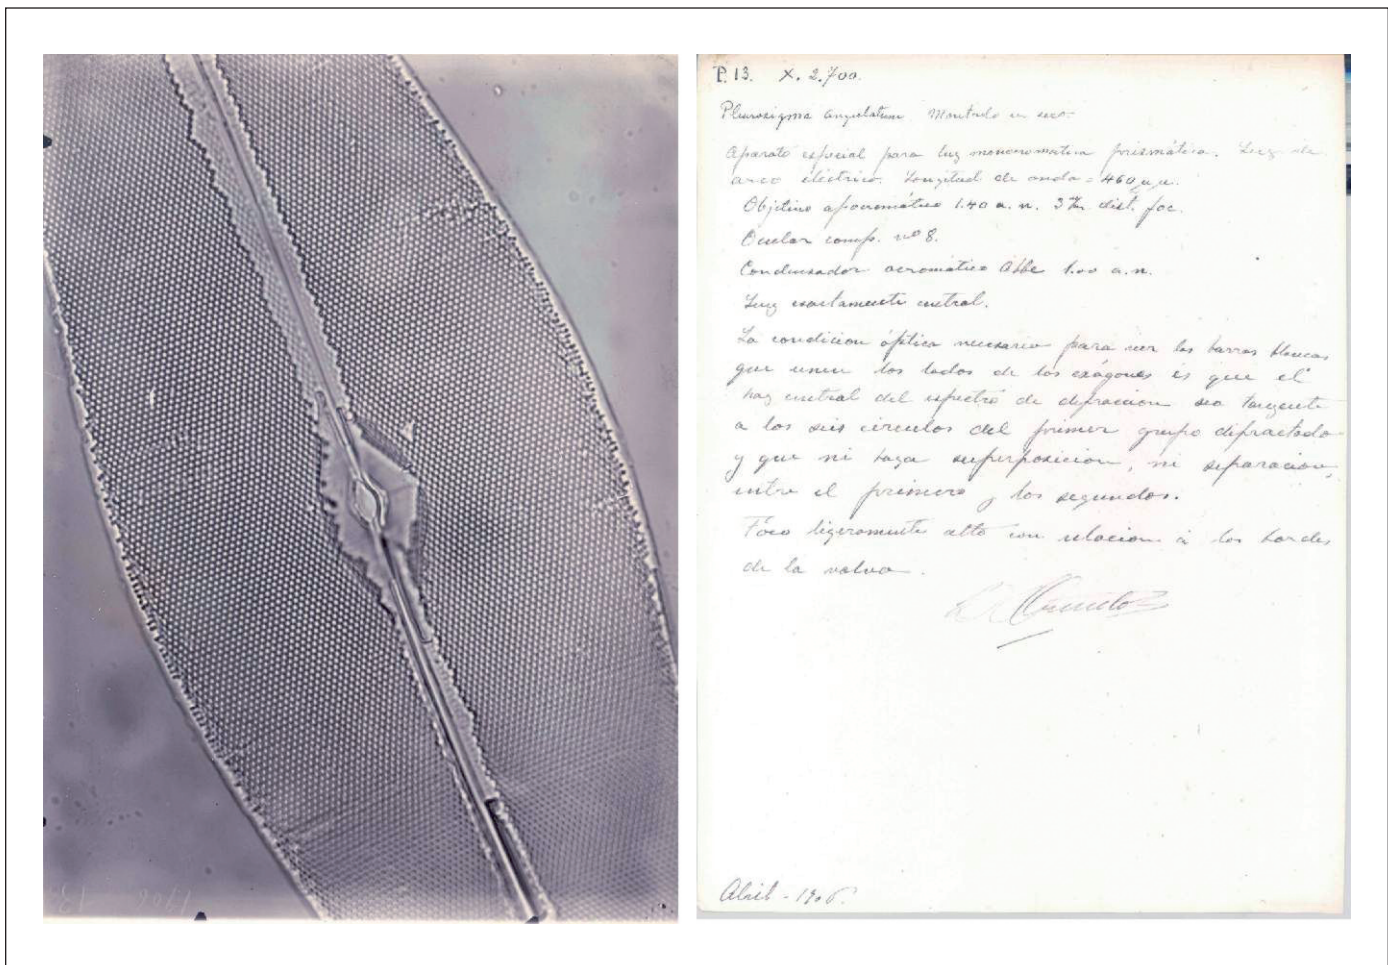 P. 13. X. 2.700.
Pleurosigma angulatum. Montado en seco.
Aparato especial para luz monocromatica prismática. Luz de
arco eléctrico. Longitud de onda = 460 µ.µ.
Objetivo apocromático 1.40 a. n. 3 m/m dist. foc.
Ocular comp. nº 8.
Condensador acromático Abbe 1.00 a. n.
Luz exactamente central.
La condicion óptica necesaria para ver las barras blancas
que unen los lados de los exágonos es que el
haz central del espectro de difraccion sea tangente
a los seis circulos del primer grupo difractado
y que ni haya superposicion, ni separacion,
entre el primero y los segundos.
Foco ligeramente alto con relacion á los bordes
de la valva.
Abril - 1906.
1906 13